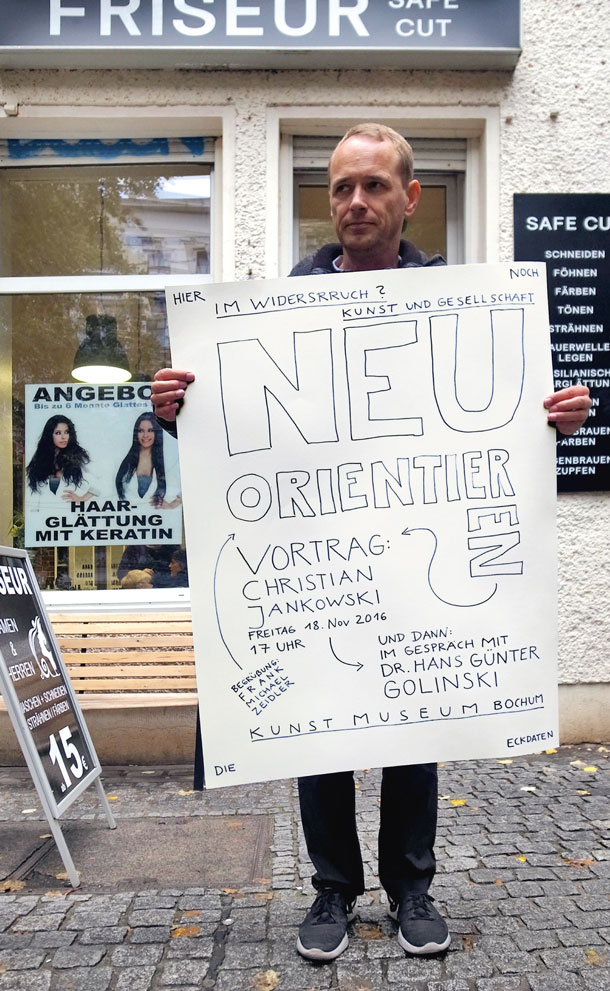 FRISEUR
SAFE
CUT
HIER
NOCH
IM WIDERSRRUCH?
KUNST UND GESELLSCHAFT
NEU
ORIENTIER
EN
VORTRAG:
CHRISTIAN
JANKOWSKI
FREITAG 18. NOV 2016
17 UHR
UND DANN:
IM GESPRÄCH MIT
DR. HANS GÜNTER
GOLINSKI
BEGRÜßUNG:
FRANK
MICHAEL
ZEIDLER
KUNST MUSEUM BOCHUM
DIE
ECKDATEN
SAFE CU
SCHNEIDEN
FÖHNEN
FÄRBEN
TÖNEN
STRÄHNEN
AUERWELLE
LEGEN
SILIANISCH
FÄRBEN
ENBRAUEN
ZUPFEN
ANGEBO
Bis zu 6 Monate Glattes
HAAR-
GLÄTTUNG
MIT KERATIN
SEUR
MEN &
HERREN
ASCHEN + SCHNEIDEN
STRÄHNEN / FÄRBEN
15.€